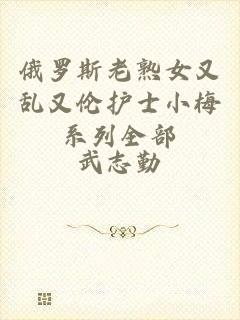 俄罗斯老熟女又
乱又伦护士小梅
系列全部
武志勤